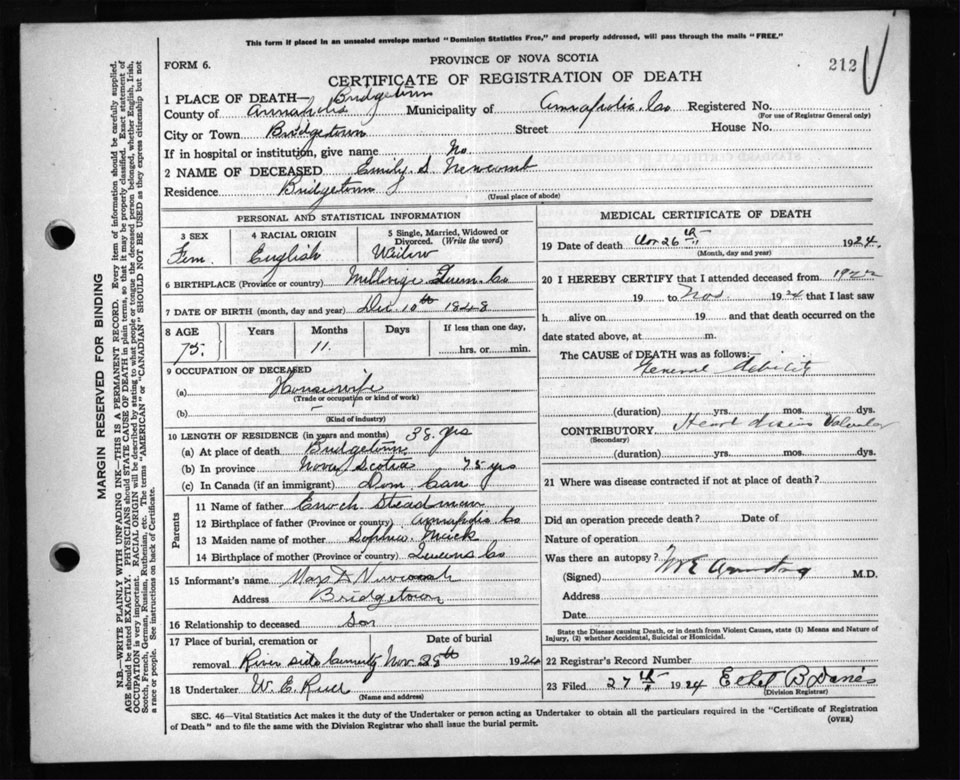 This form if placed in an unsealed envelope marked "Dominion Statistics Free," and properly addressed, will pass through the mails "FREE."
FORM 6.
PROVINCE OF NOVA SCOTIA
212
CERTIFICATE OF REGISTRATION OF DEATH
1 PLACE OF DEATH— Bridgetown
County of Annapolis Municipality of Annapolis Co Registered No.
(For use of Registrar General only)
City or Town Bridgetown Street House No.
If in hospital or institution, give name No
2 NAME OF DECEASED Emily S. Newcomb
Residence Bridgetown
(Usual place of abode)
PERSONAL AND STATISTICAL INFORMATION
3 SEX
Fem.
4 RACIAL ORIGIN
English
5 Single, Married, Widowed or
Divorced. (Write the word)
6 BIRTHPLACE (Province or country) Queens Co
7 DATE OF BIRTH (month, day and year) Dec. 10th 1848
8 AGE Years Months Days If less than one day,
75. 11. hrs. or min.
9 OCCUPATION OF DECEASED
(a) Housewife
(Trade or occupation or kind of work)
(b)
(Kind of industry)
10 LENGTH OF RESIDENCE (in years and months) 38 yrs
(a) At place of death Bridgetown
(b) In province Nova Scotia 75 yrs
(c) In Canada (if an immigrant) Dom Can
Parents
11 Name of father Enoch Steadman
12 Birthplace of father (Province or country) Annapolis Co
13 Maiden name of mother Sophia
14 Birthplace of mother (Province or country) Queens Co
15 Informant's name
Address Bridgetown
16 Relationship to deceased Son
17 Place of burial, cremation or Date of burial
removal River side Nov. 28th 1924
18 Undertaker W. E.
(Name and address)
MEDICAL CERTIFICATE OF DEATH
19 Date of death 26th 1924.
(Month, day and year)
20 I HEREBY CERTIFY that I attended deceased from
19 to Nov 1924 that I last saw
h alive on 19 and that death occurred on the
date stated above, at m.
The CAUSE of DEATH was as follows:
General Debility
(duration) yrs. mos. dys.
CONTRIBUTORY Heart Valvular
(Secondary)
(duration) yrs. mos. dys.
21 Where was disease contracted if not at place of death?
Did an operation precede death? Date of
Nature of operation
Was there an autopsy?
(Signed) M.D.
Address
Date
State the Disease causing Death, or in death from Violent Causes, state (1) Means and Nature of
Injury, (2) whether Accidental, Suicidal or Homicidal.
22 Registrar's Record Number
23 Filed 27th 1924
(Division Registrar)
SEC. 46—Vital Statistics Act makes it the duty of the Undertaker or person acting as Undertaker to obtain all the particulars required in the "Certificate of Registration
of Death" and to file the same with the Division Registrar who shall issue the burial permit.
(OVER)
MARGIN RESERVED FOR BINDING
N.B.—WRITE PLAINLY WITH UNFADING INK—THIS IS A PERMANENT RECORD. Every item of information should be carefully supplied.
AGE should be stated EXACTLY. PHYSICIANS should STATE CAUSE OF DEATH in plain terms, so that it may be properly classified. Exact statement of
OCCUPATION is very important. RACIAL ORIGIN will be described by stating to what people or tongue the deceased person belonged, whether English, Irish,
Scotch, French, German, Russian, Ruthenian, etc. The terms "AMERICAN" or "CANADIAN" SHOULD NOT BE USED as they express citizenship but not
a race or people. See instructions on back of Certificate.